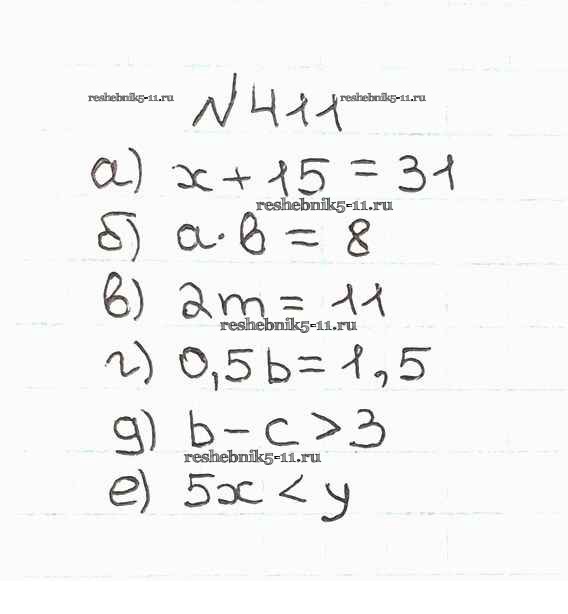 reshebnik5-11.ru №411 reshebnik5-11.ru
а) x + 15 = 31
reshebnik5-11.ru
б) a·b = 8
в) 2m = 11
reshebnik5-11.ru
г) 0,5b = 1,5
д) b - c > 3
reshebnik5-11.ru
е) 5x < y